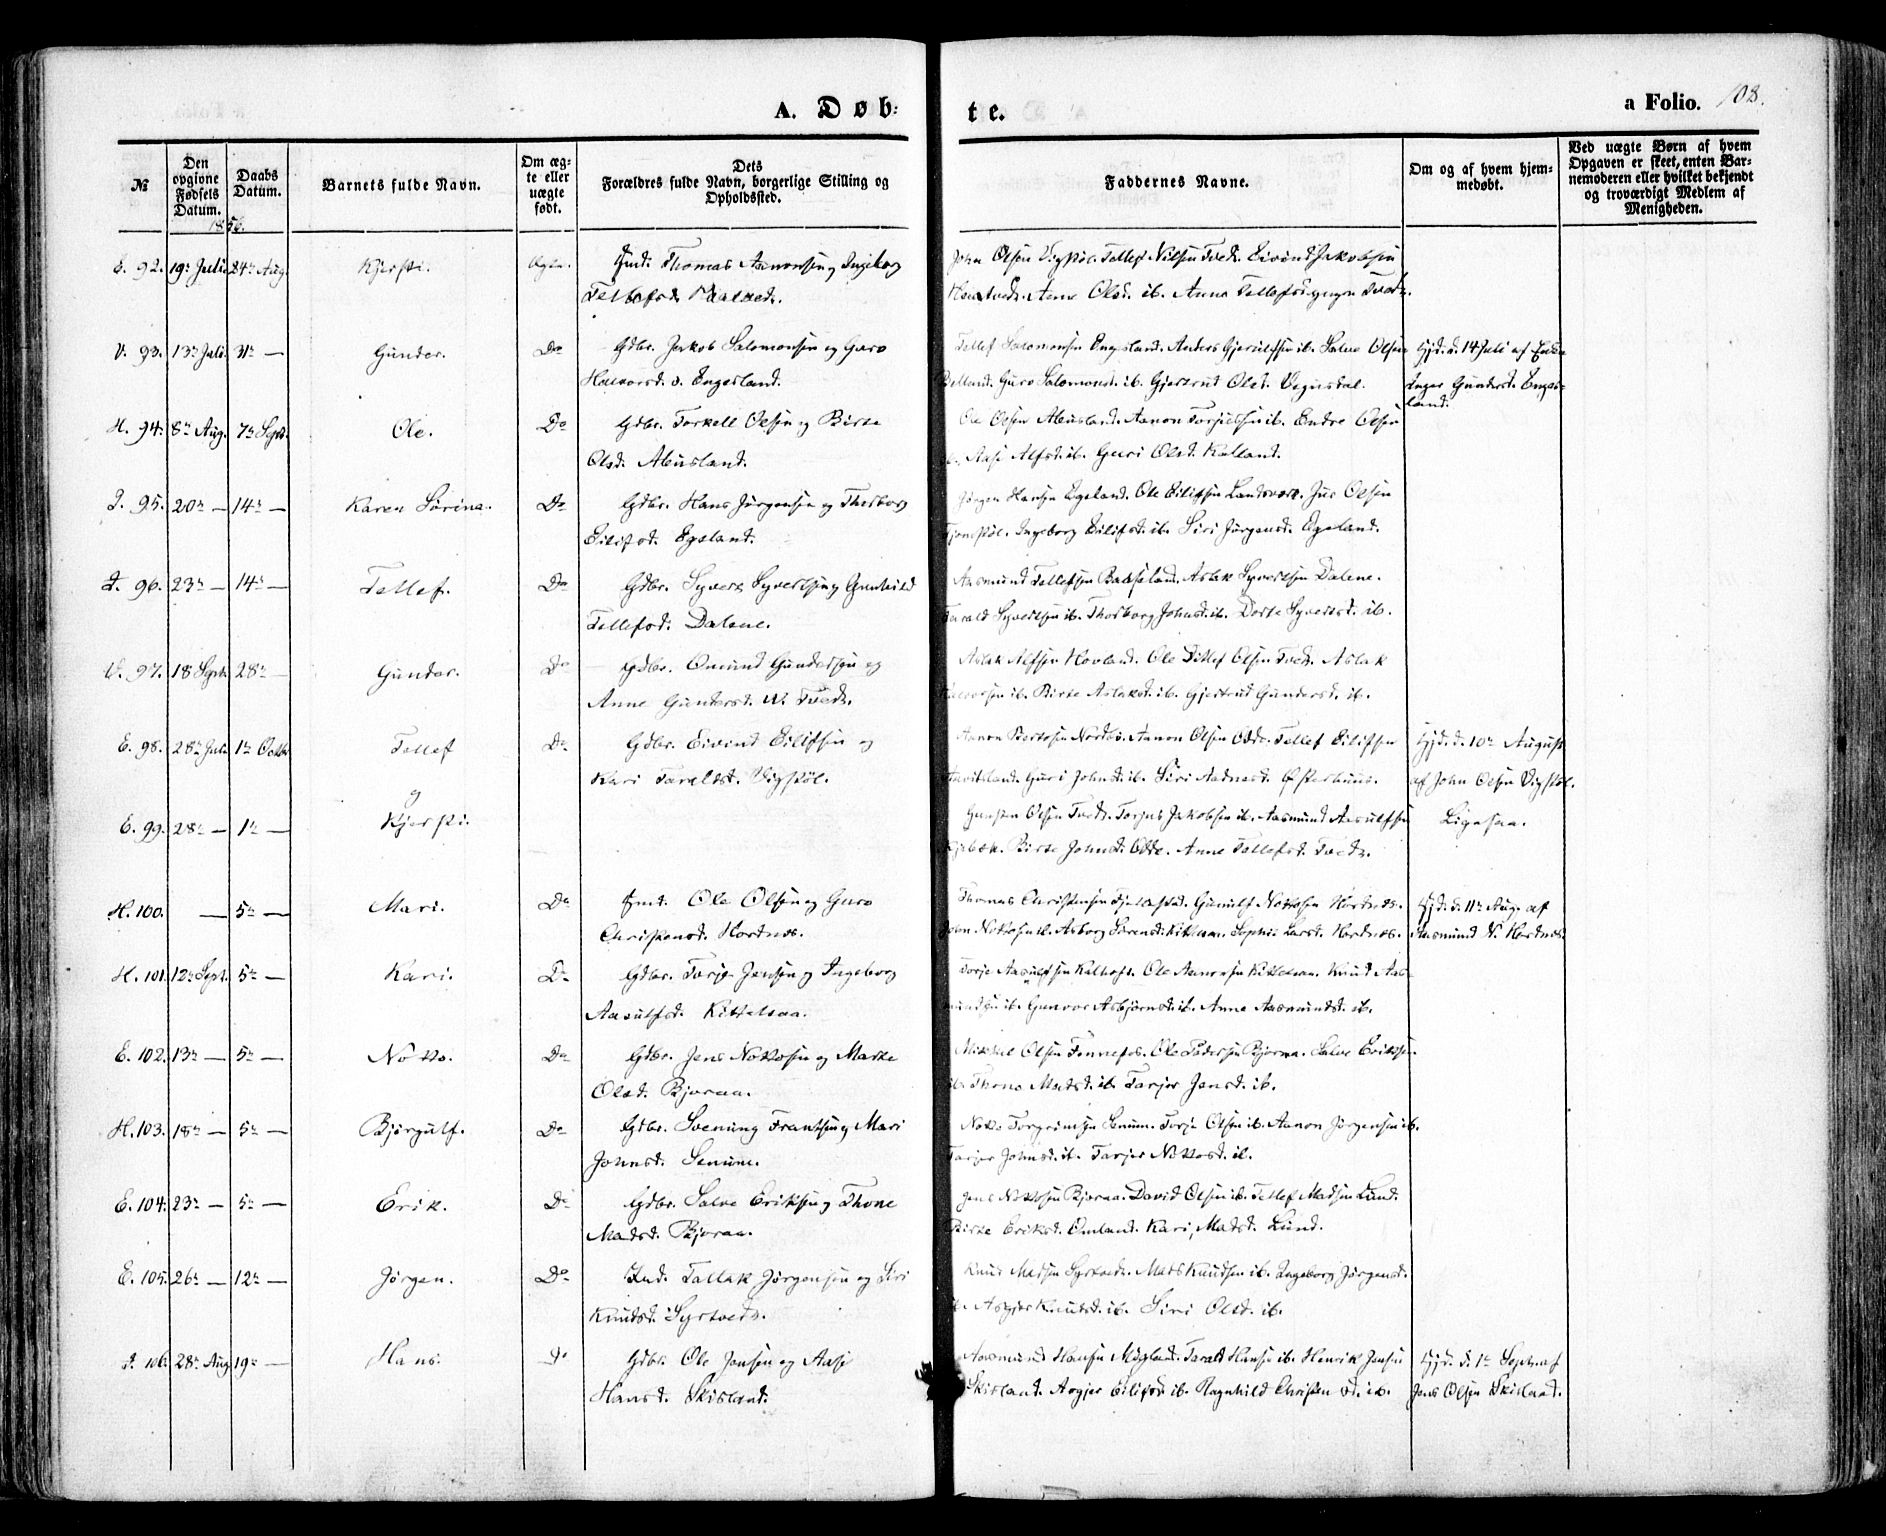 A. Døb:
te.
a Folio. 108.
№
Den opgivne Fødsels Datum.
Daabs Datum.
Barnets fulde Navn.
Om ægte eller uægte født.
Dets Forældres fulde Navn, borgerlige Stilling og Opholdssted.
Faddernes Navne.
Om og af hvem hjemmedøbt.
Ved uægte Børn af hvem Opgaven er skeet, enten Barnemoderen eller hvilket bekjendt og troværdigt Medlem af Menigheden.
1856.
E. 92. 19de Juli 24de Aug. Kjersti. Ægte. Thomas Aanonsen og Ingeborg
Tellefsd.
John Olsen Vigstøl. Tellef Nilsen Tvedt. Eivind Jakobsen
Olsd. ib. Anne Tellefsd.
V. 93. 13de Juli 31te — Gunder. Do Gdbr. Jakob Salomonsen og Guro
Halvorsd. v. Engesland.
Tellef Salomonsen Engesland. Anders Gjerulfsen ib. Salve Olsen
Guro Salomonsd. ib. Gjertrud Olsd. Vegusdal.
Hjd. d. 14 Juli af
Inger Gundersd. Enges-
land.
H. 94. 8de Aug. 7de Sept. Ole. Do Gdbr. Torkell Olsen og Birte
Olsd. Abusland.
Ole Olsen Abusland. Aanon Torjulsen ib. Endre Olsen
ib. Aase Alfsd. ib. Guri Olsd. Kalland.
I. 95. 20de — 14de — Karen Sørine. Do Gdbr. Hans Jørgensen og Thorborg
Eilifsd. Egeland.
Jørgen Hansen Egeland. Ole Eilifsen Jus Olsen
Ingeborg Eilifsd. ib. Siri Jørgensd. Egeland.
I. 96. 23de — 14de — Tellef. Do Gdbr. Syvert Syvertsen og Gunhild
Tellefsd. Dalene.
Aasmund Tellefsen Aslak Syvertsen Dalene.
Tarald Syvertsen ib. Thorborg Johnsd. ib. Dorte Syvertsd. ib.
V. 97. 18 Sept. 28de — Gunder. Do Gdbr. Omund Gundersen og
Anne Gundersd. N. Tvedt.
Aslak Alfsen Hovland. Ole Ditlef Olsen Tvedt. Aslak
Halvorsen ib. Birte Aslaksd. ib. Gjertrud Gundersd. ib.
E. 98. 28de Juli 1te Octbr Tellef Do Gdbr. Eivind Eilifsen og
Kari Taraldsd. Vigstøl.
Aanon Bertosen Aanon Olsen Odde. Tellef Eilifsen
Guri Johnsd. ib. Siri Aadnesd. Østerhuus.
Hjd. d. 10de August
af John Olsen Vigstøl.
og
E. 99. 28de — 1te — Kjersti.
Gunsten Olsen Tvedt. Torjus Jakobsen ib. Aasmund Aasulfsen
Birte Johnsd. Odde. Anne Tellefsd. Tvedt.
Ligesaa.
H. 100. — 5te — Mari. Do Ole Olsen og Guro
Christensd. Hordnes.
Thomas Christensen Gunulf Nottosen Hordnes.
John Nottosen ib. Asborg Sørensd. Kittelsaa. Sophie Larsd. Hordnes.
Hjd. d. 11te Aug. af
Aasmund N. Hordnes.
H. 101. 12te Sept. 5te — Kari. Do Gdbr. Torje Jensen og Ingeborg
Aasulfsd. Kittelsaa.
Torje Aasulfsen Ole Aanonsen Kittelsaa. Knud Aas-
mundsen ib. Gunvor Asbjørnsd. ib. Anne Aasmundsd. ib.
E. 102. 13de — 5te — Notto. Do Gdbr. Jens Nottosen og Marte
Olsd. Bjoraa.
Mikkel Olsen Fennefos. Ole Pedersen Bjoraa. Salve Eriksen
ib. Thone Madsd. ib. Tarjer Jensd. ib.
H. 103. 18de — 5te — Bjørgulf. Do Gdbr. Svenung Frantsen og Mari
Johnsd. Senum.
Notto Torgrimsen Senum. Torje Olsen ib. Aanon Jørgensen ib.
Tarjer Johnsd. ib. Tarjer Nottosd. ib.
E. 104. 23de — 5te — Erik. Do Gdbr. Salve Eriksen og Thone
Madsd. Bjoraa.
Jens Nottosen Bjoraa. David Olsen ib. Tellef Madsen Lund.
Birte Eriksd. Omland. Kari Madsd. Lund.
E. 105. 26de — 12te — Jørgen. Do Ind. Tallak Jørgensen og Siri
Knudsd. Syrtvedt.
Knud Madsen Syrtvedt. Mads Knudsen ib. Ingeborg Jørgensd.
ib. Asgjer Knudsd. ib. Siri Olsd. ib.
I. 106. 28de Aug 19de — Hans. Do Gdbr. Ole Jensen og Aase
Hansd. Skisland.
Aasmund Hansen Møgland. Tarald Hansen ib. Henrik Jensen
Skisland. Asgjer Eilifsd. ib. Ragnhild Christensd. ib.
Hjd. d. 1te Sept. af
Jens Olsen Skisland.